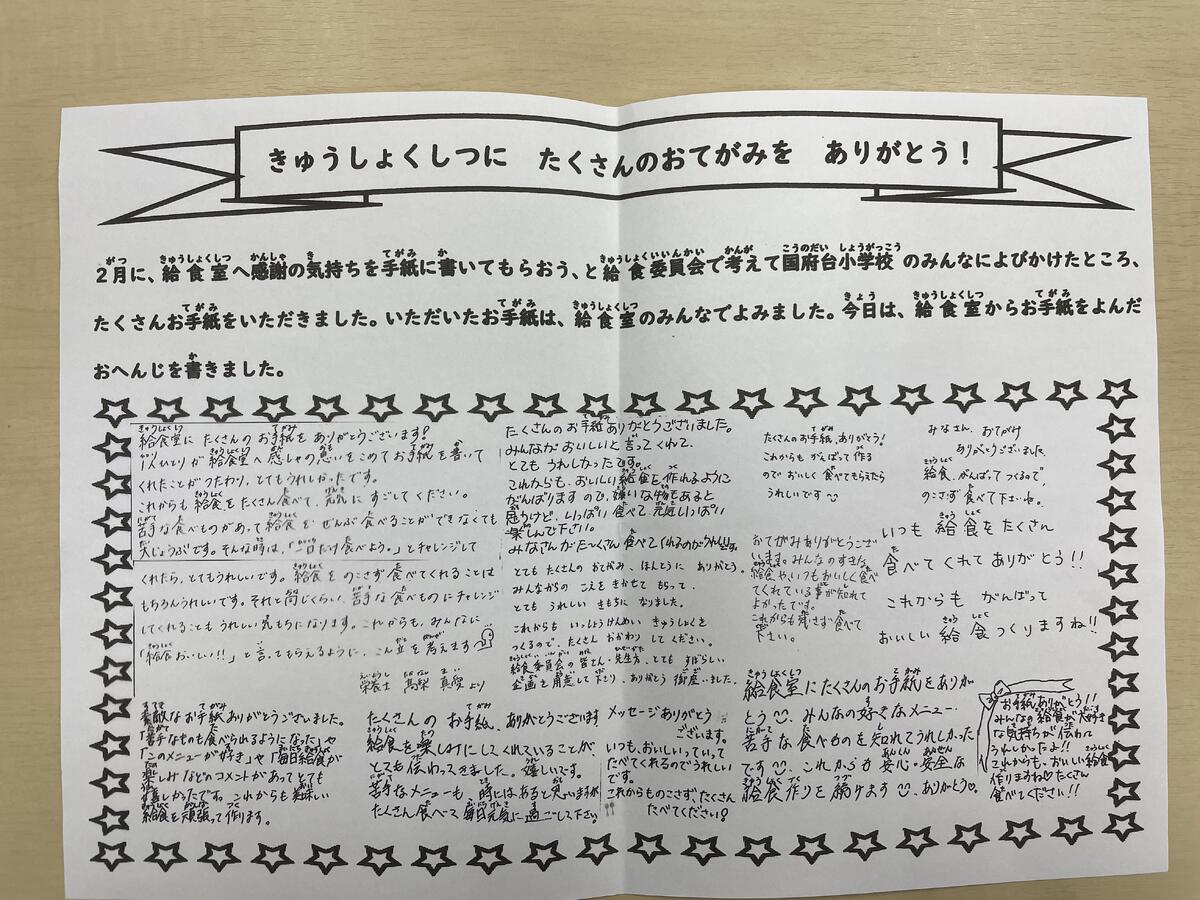 きゅうしょくしつに　たくさんのおてがみを　ありがとう！
２月に、給食室へ感謝の気持ちを手紙に書いてもらおう、と給食委員会で考えて国府台小学校のみんなによびかけたところ、
たくさんお手紙をいただきました。いただいたお手紙は、給食室のみんなでよみました。今日は、給食室からお手紙をよんだ
おへんじを書きました。
給食室にたくさんのお手紙をありがとうございます!
1人ひとりが給食室へ感しゃの思いをこめてお手紙を書いて
くれたことがつたわり、とてもうれしかったです。
これからも給食をたくさん食べて、元気にすごしてください。
苦手な食べものがあって給食をぜんぶ食べることができなくても
大じょうぶです。そんな時は、「一口だけ食べよう。」とチャレンジして
くれたら、とてもうれしいです。給食をのこさず食べてくれることは
もちろんうれしいです。それと同じくらい、苦手な食べものにチャレンジ
してくれることもうれしい気もちになります。これからも、みんなに
「給食おいしい!!」と言ってもらえるように、こん立を考えます
栄養士 髙梨 真愛 より
たくさんのお手紙ありがとうございました。
みんながおいしいと言ってくれて、
とてもうれしかったです。
これからも、おいしい給食を作れるように
がんばりますので、嫌いな物もあると
思うけど、いっぱい食べて元気いっぱい
楽しんで下さい。
みなさんがた〜くさん食べてくれるのがうれしいです。
とても たくさんの おてがみ、ほんとうに ありがとう。
みんなからの こえを きかせて もらって、
とても うれしい きもちに なりました。
これからも いっしょうけんめい きゅうしょくを
つくるので、たくさん おかわり してください。
給食委員会の皆さん・先生方、とても すばらしい
企画を用意して下さり、ありがとう御座いました。
たくさんのお手紙、ありがとう!
これからも がんばって作る
のでおいしく食べてもらえたら
うれしいです
みなさん、おてがみ
ありがとうございました
給食、がんばってつくるので、
のこさず食べて下さいね。
おてがみありがとうござい
います。みんなのすきな
給食や、いつもおいしく食べ
てくれている事が知れて
よかったです。
これからも残さず食べて
下さい。
いつも 給食をたくさん
食べてくれてありがとう!!
これからも がんばって
おいしい給食つくりますね!!
素敵なお手紙ありがとうございました。
「苦手なものも食べられるようになった」や
「このメニューが好き」や「毎日給食が
楽しみなどのコメントがあってとても
嬉しかったです。これからも美味しい
給食を頑張って作ります。
たくさんのお手紙、ありがとうございます
給食を楽しみにしてくれていることが、
とても伝わってきました。嬉しいです。
苦手なメニューも時にはあると思いますが
たくさん食べて毎日元気に過ごして下さい
メッセージありがとう
ございます。
いつも、おいしいっていって
たべてくれるのでうれしい
です。
これからものこさず、たくさん
たべてください!
給食室にたくさんのお手紙をありが
とう みんなの好きなメニュー
苦手な食べものを知れてうれしかった
です これからも安心・安全な
給食作りを続けます ありがとう♡
お手紙ありがとう!!
みんなの給食が大好き
な気持ちが伝わって
うれしかったよ!!
これからも、おいしい給食
作りますね♡たくさん
食べてください!!